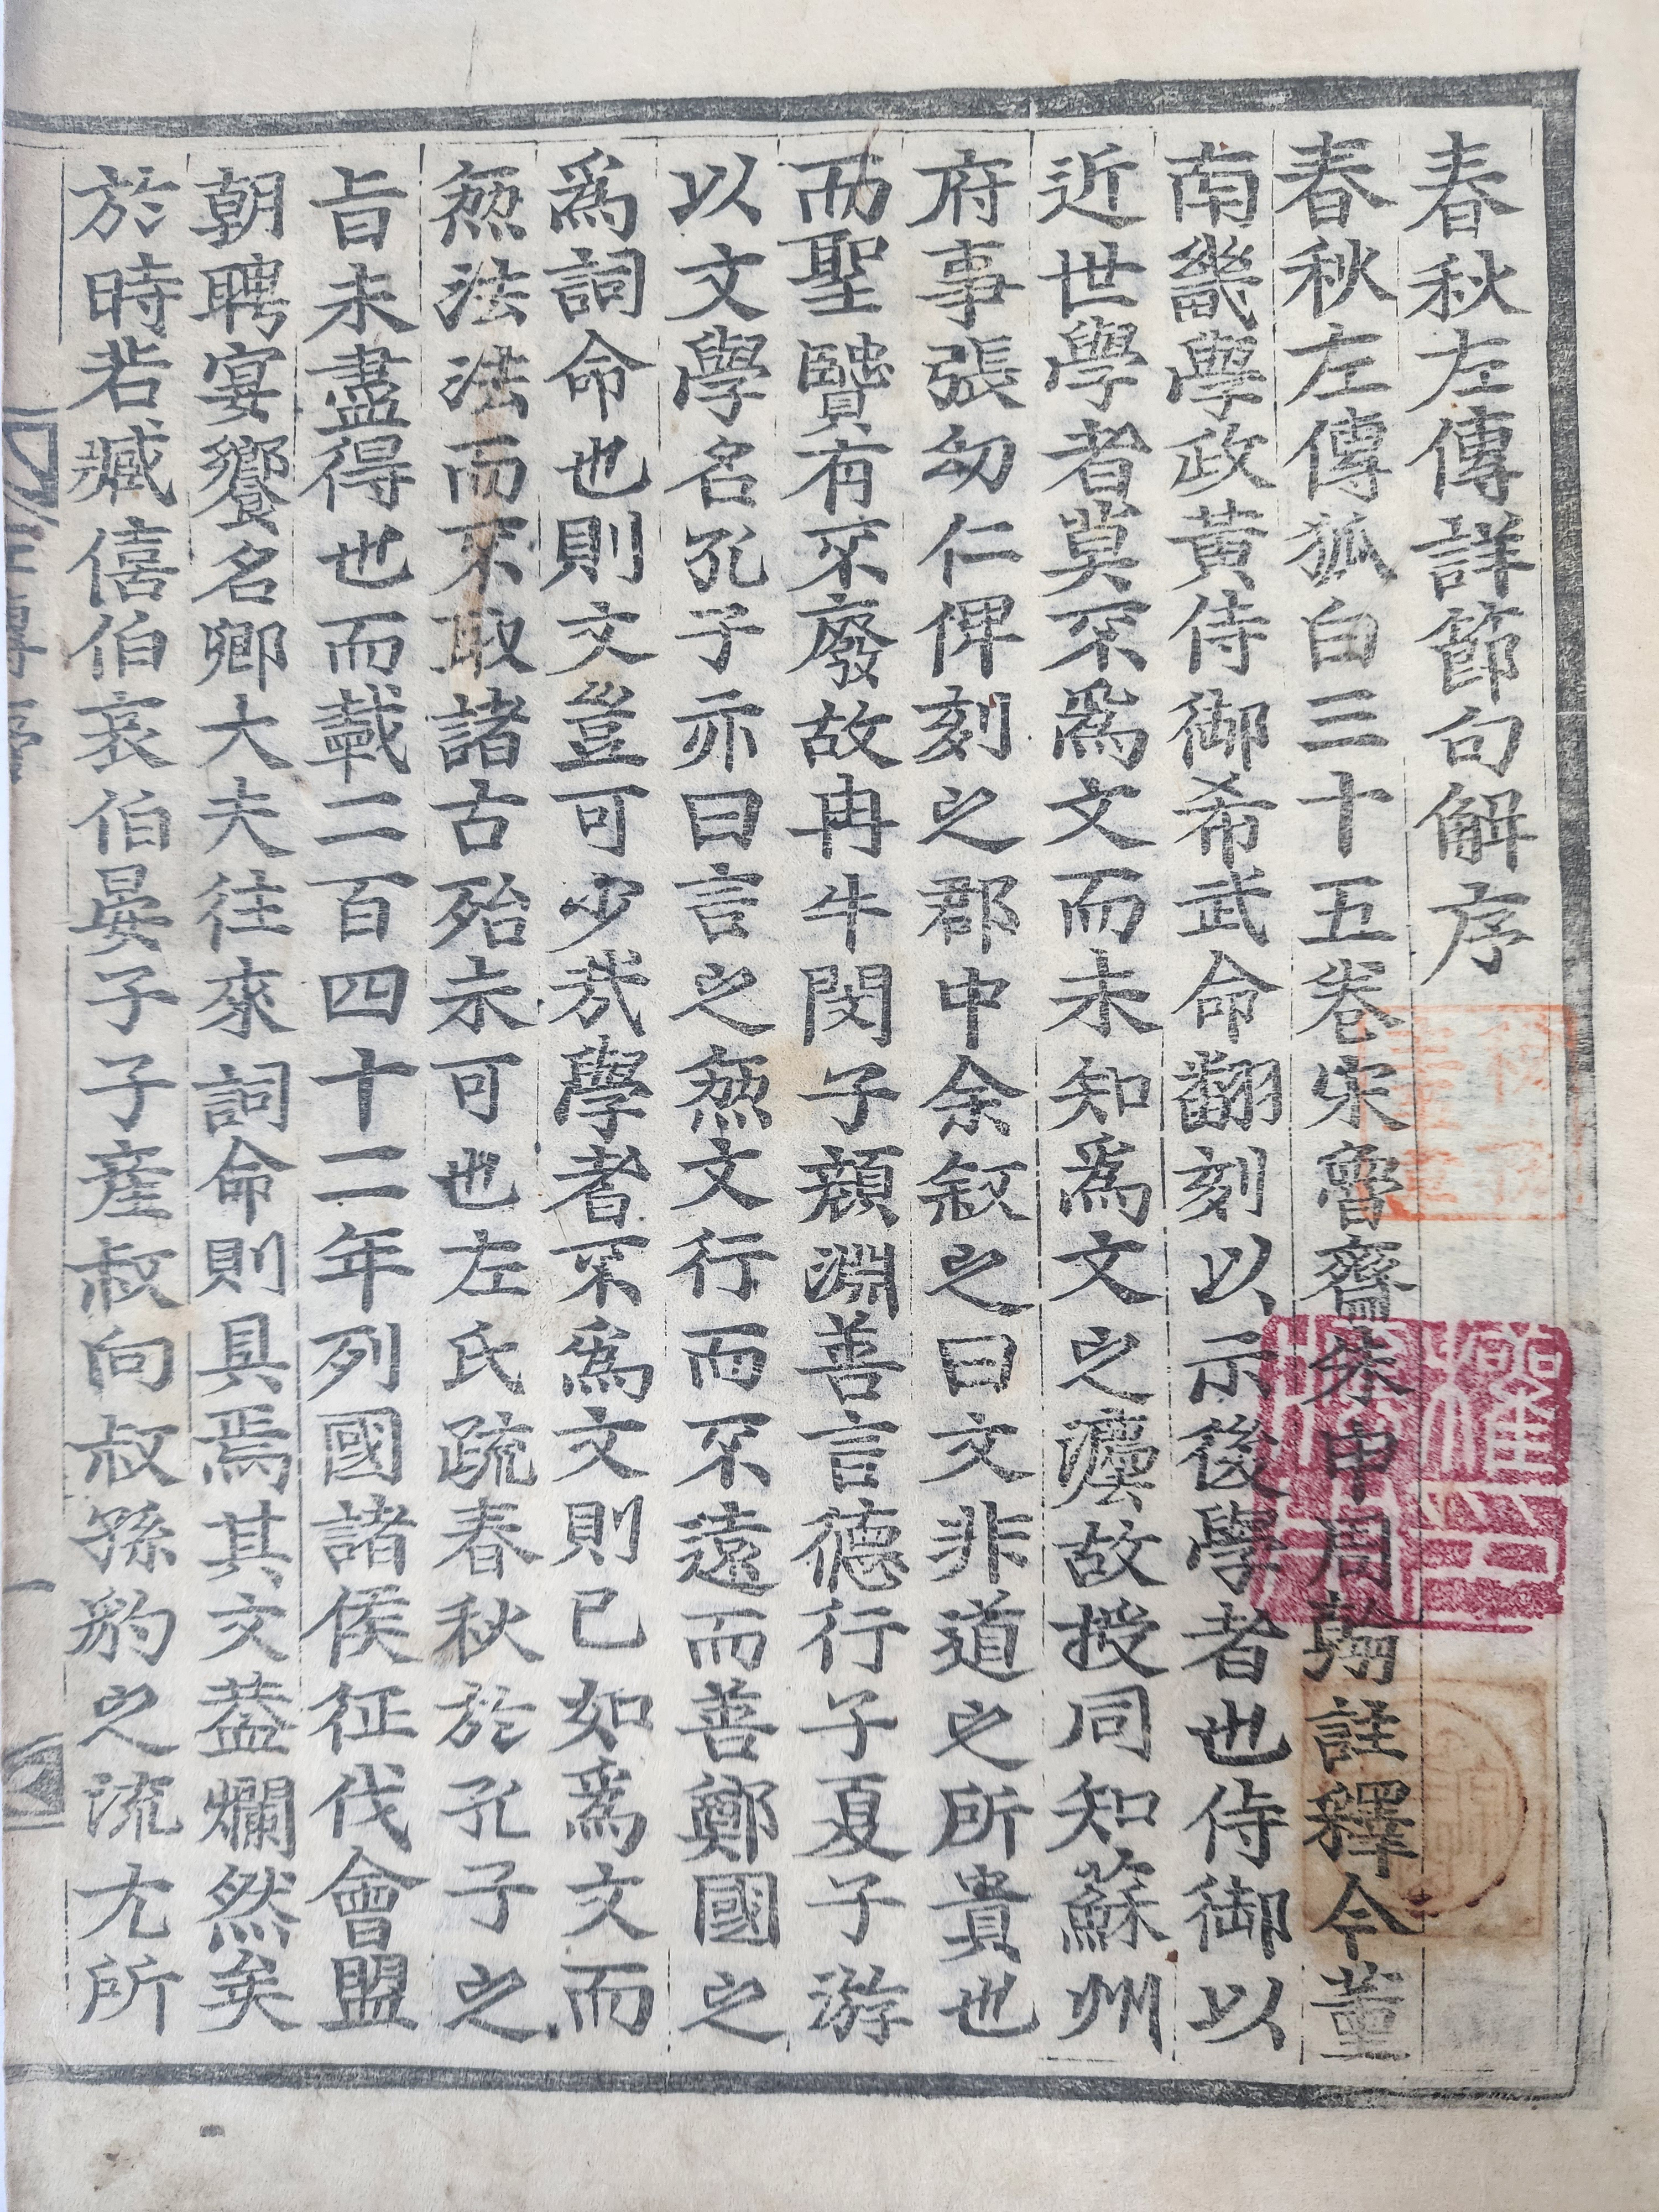 春秋左傳詳節句解序
春秋左傳狐白三十五卷宋魯齋朱申周翰註釋今董
南畿學政黃侍御希武命翻刻以示後學者也侍御以
近世學者莫不爲文而未知爲文之灋故授同知蘇州
府事張幼仁俾刻之郡中余叙之曰文非道之所貴也
而聖賢有不廢故冉牛閔子顔淵善言德行子夏子游
以文學名孔子亦曰言之無文行而不遠而善鄭國之
爲詞命也則文豈可少哉學者不爲文則已如爲文而
無法法而不取諸古殆未可也左氏疏春秋於孔子之
旨未盡得也而載二百四十二年列國諸侯征伐會盟
朝聘宴饗名卿大夫往來詞命則具焉其文葢爛然矣
於時若臧僖伯哀伯晏子子產叔向叔孫豹之流尤所
一